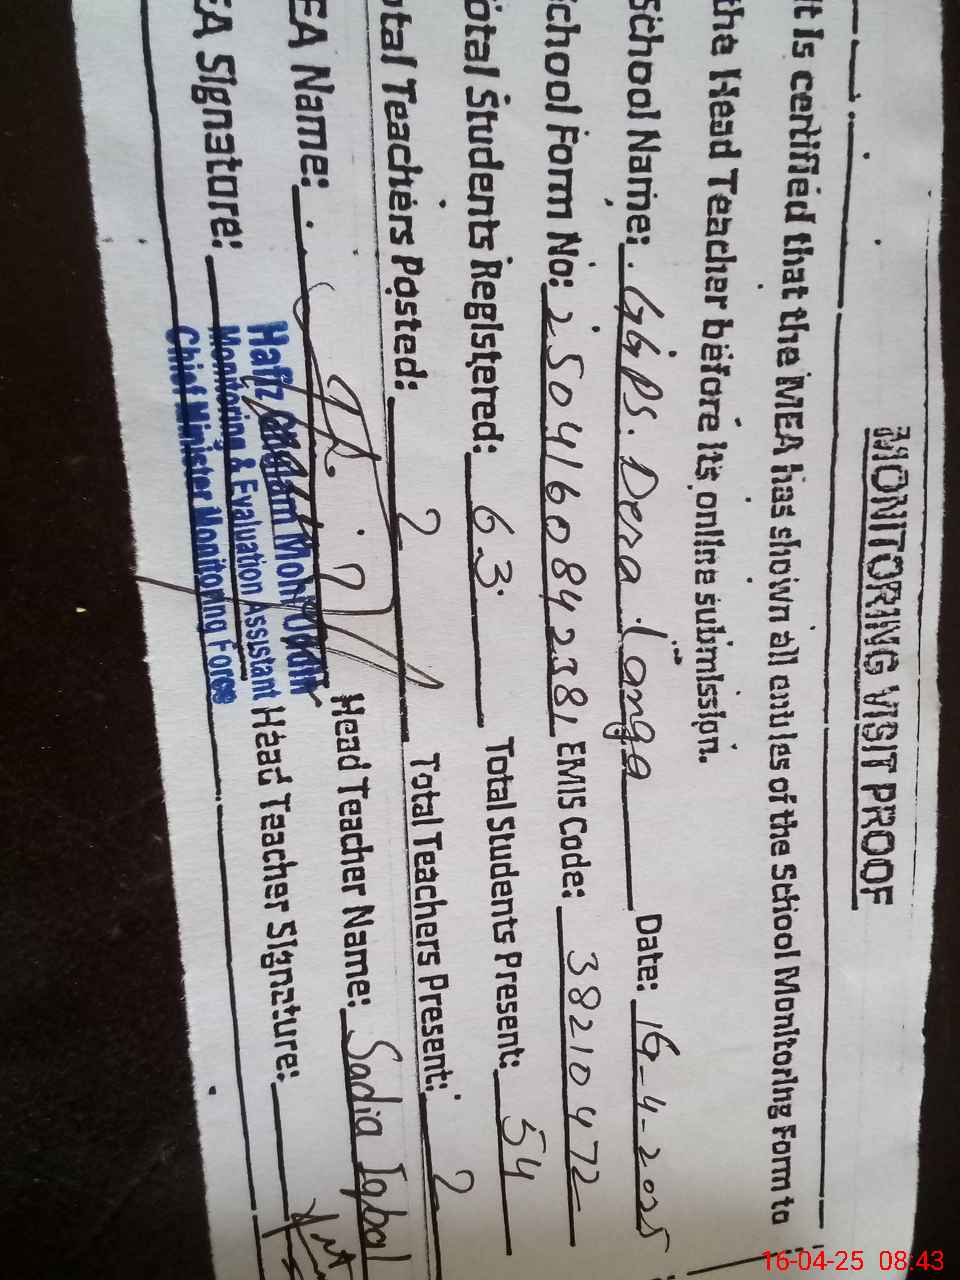 MONITORING VISIT PROOF
It is certified that the MEA has shown all entries of the School Monitoring Form to
the Head Teacher before its online submission.
School Name: GGPS. Dera Langa Date: 16-4-2025
School Form No: 2504160842381 EMIS Code: 38210472
Total Students Registered: 63 Total Students Present: 54
Total Teachers Posted: 2 Total Teachers Present: 2
EA Name: Head Teacher Name: Sadia Iqbal
EA Signature: Head Teacher Signature:
Hafiz
Monitoring & Evaluation Assistant
Chief Minister Monitoring Force
16-04-25 08:43